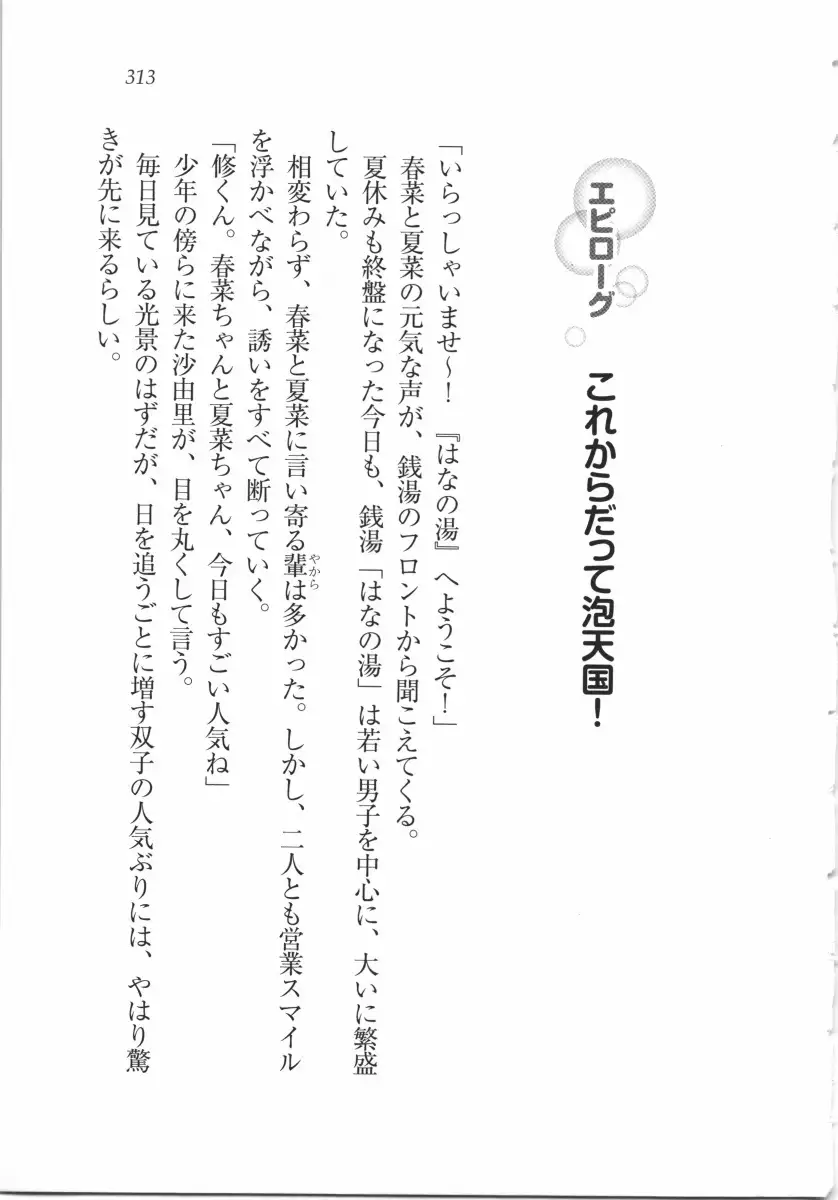 エピローグ　これからだって泡天国！
「いらっしゃいませ～！　『はなの湯』へようこそ！」
春菜と夏菜の元気な声が、銭湯のフロントから聞こえてくる。
夏休みも終盤になった今日も、銭湯「はなの湯」は若い男子を中心に、大いに繁盛
していた。
相変わらず、春菜と夏菜に言い寄る輩は多かった。しかし、二人とも営業スマイル
やから
を浮かべながら、誘いをすべて断っていく。
「修くん。春菜ちゃんと夏菜ちゃん、今日もすごい人気ね」
少年の傍らに来た沙由里が、目を丸くして言う。
毎日見ている光景のはずだが、日を追うごとに増す双子の人気ぶりには、やはり驚
きが先に来るらしい。
313